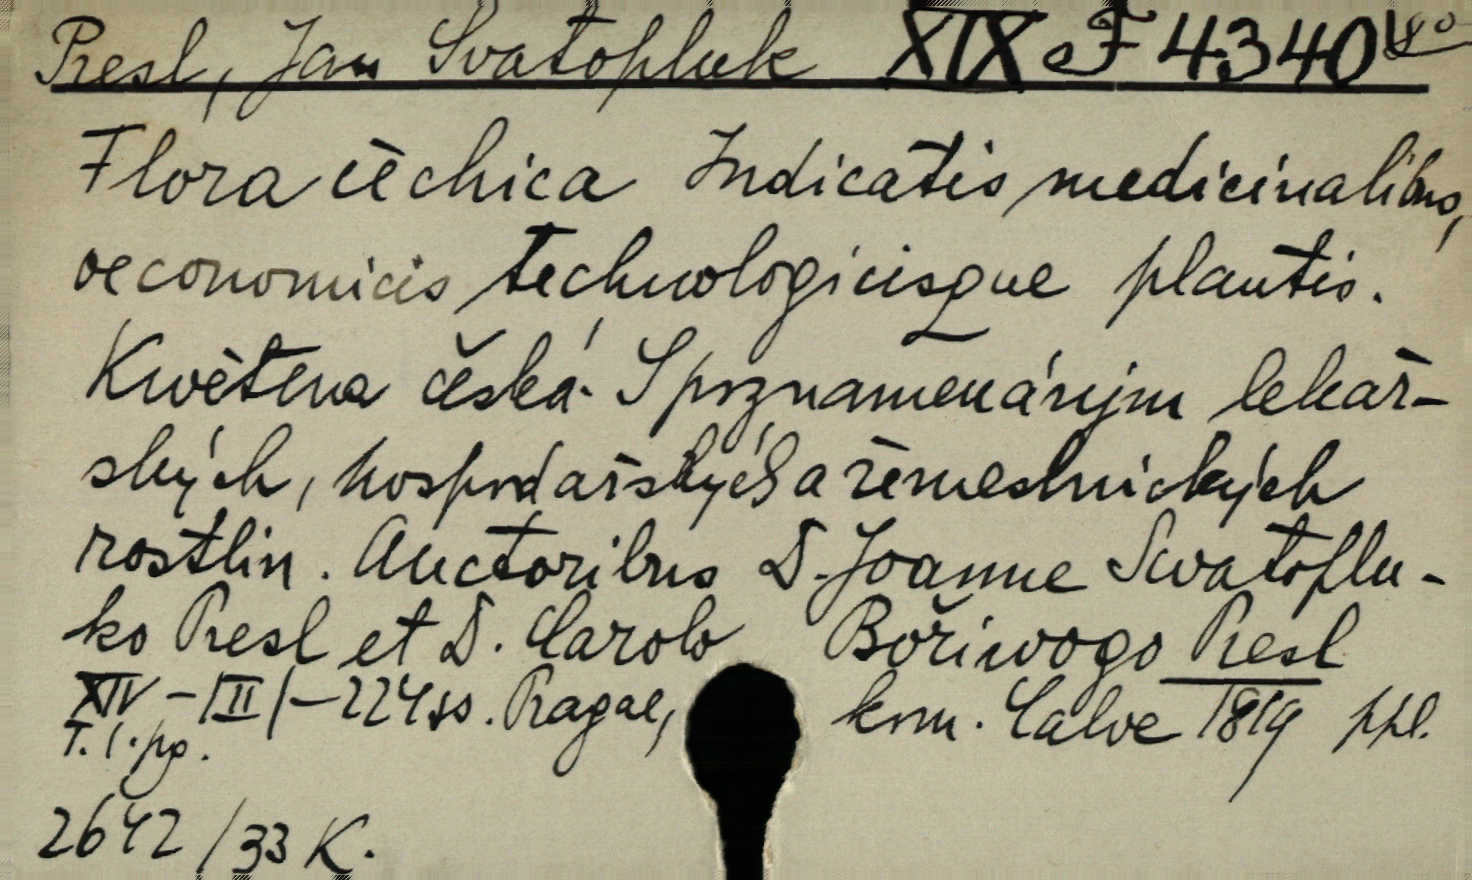 Presl, Jan Svatopluk XIX F 4340
Flora čechica Indicatis medicinalibus,
oeconomicis technologicisque plantis.
Kwětena česká. S poznamenánjm lekař-
ských, hospodařských a řemeslnických
rostlin. Auctoribus D. Joanne Swatoplu-
ko Presl et D. Carolo Bořiwogo Presl
XIV - |II| - 224 ss. Pragae, kom. Calve 1819 ppl.
T. I. pg.
2642/33 K.